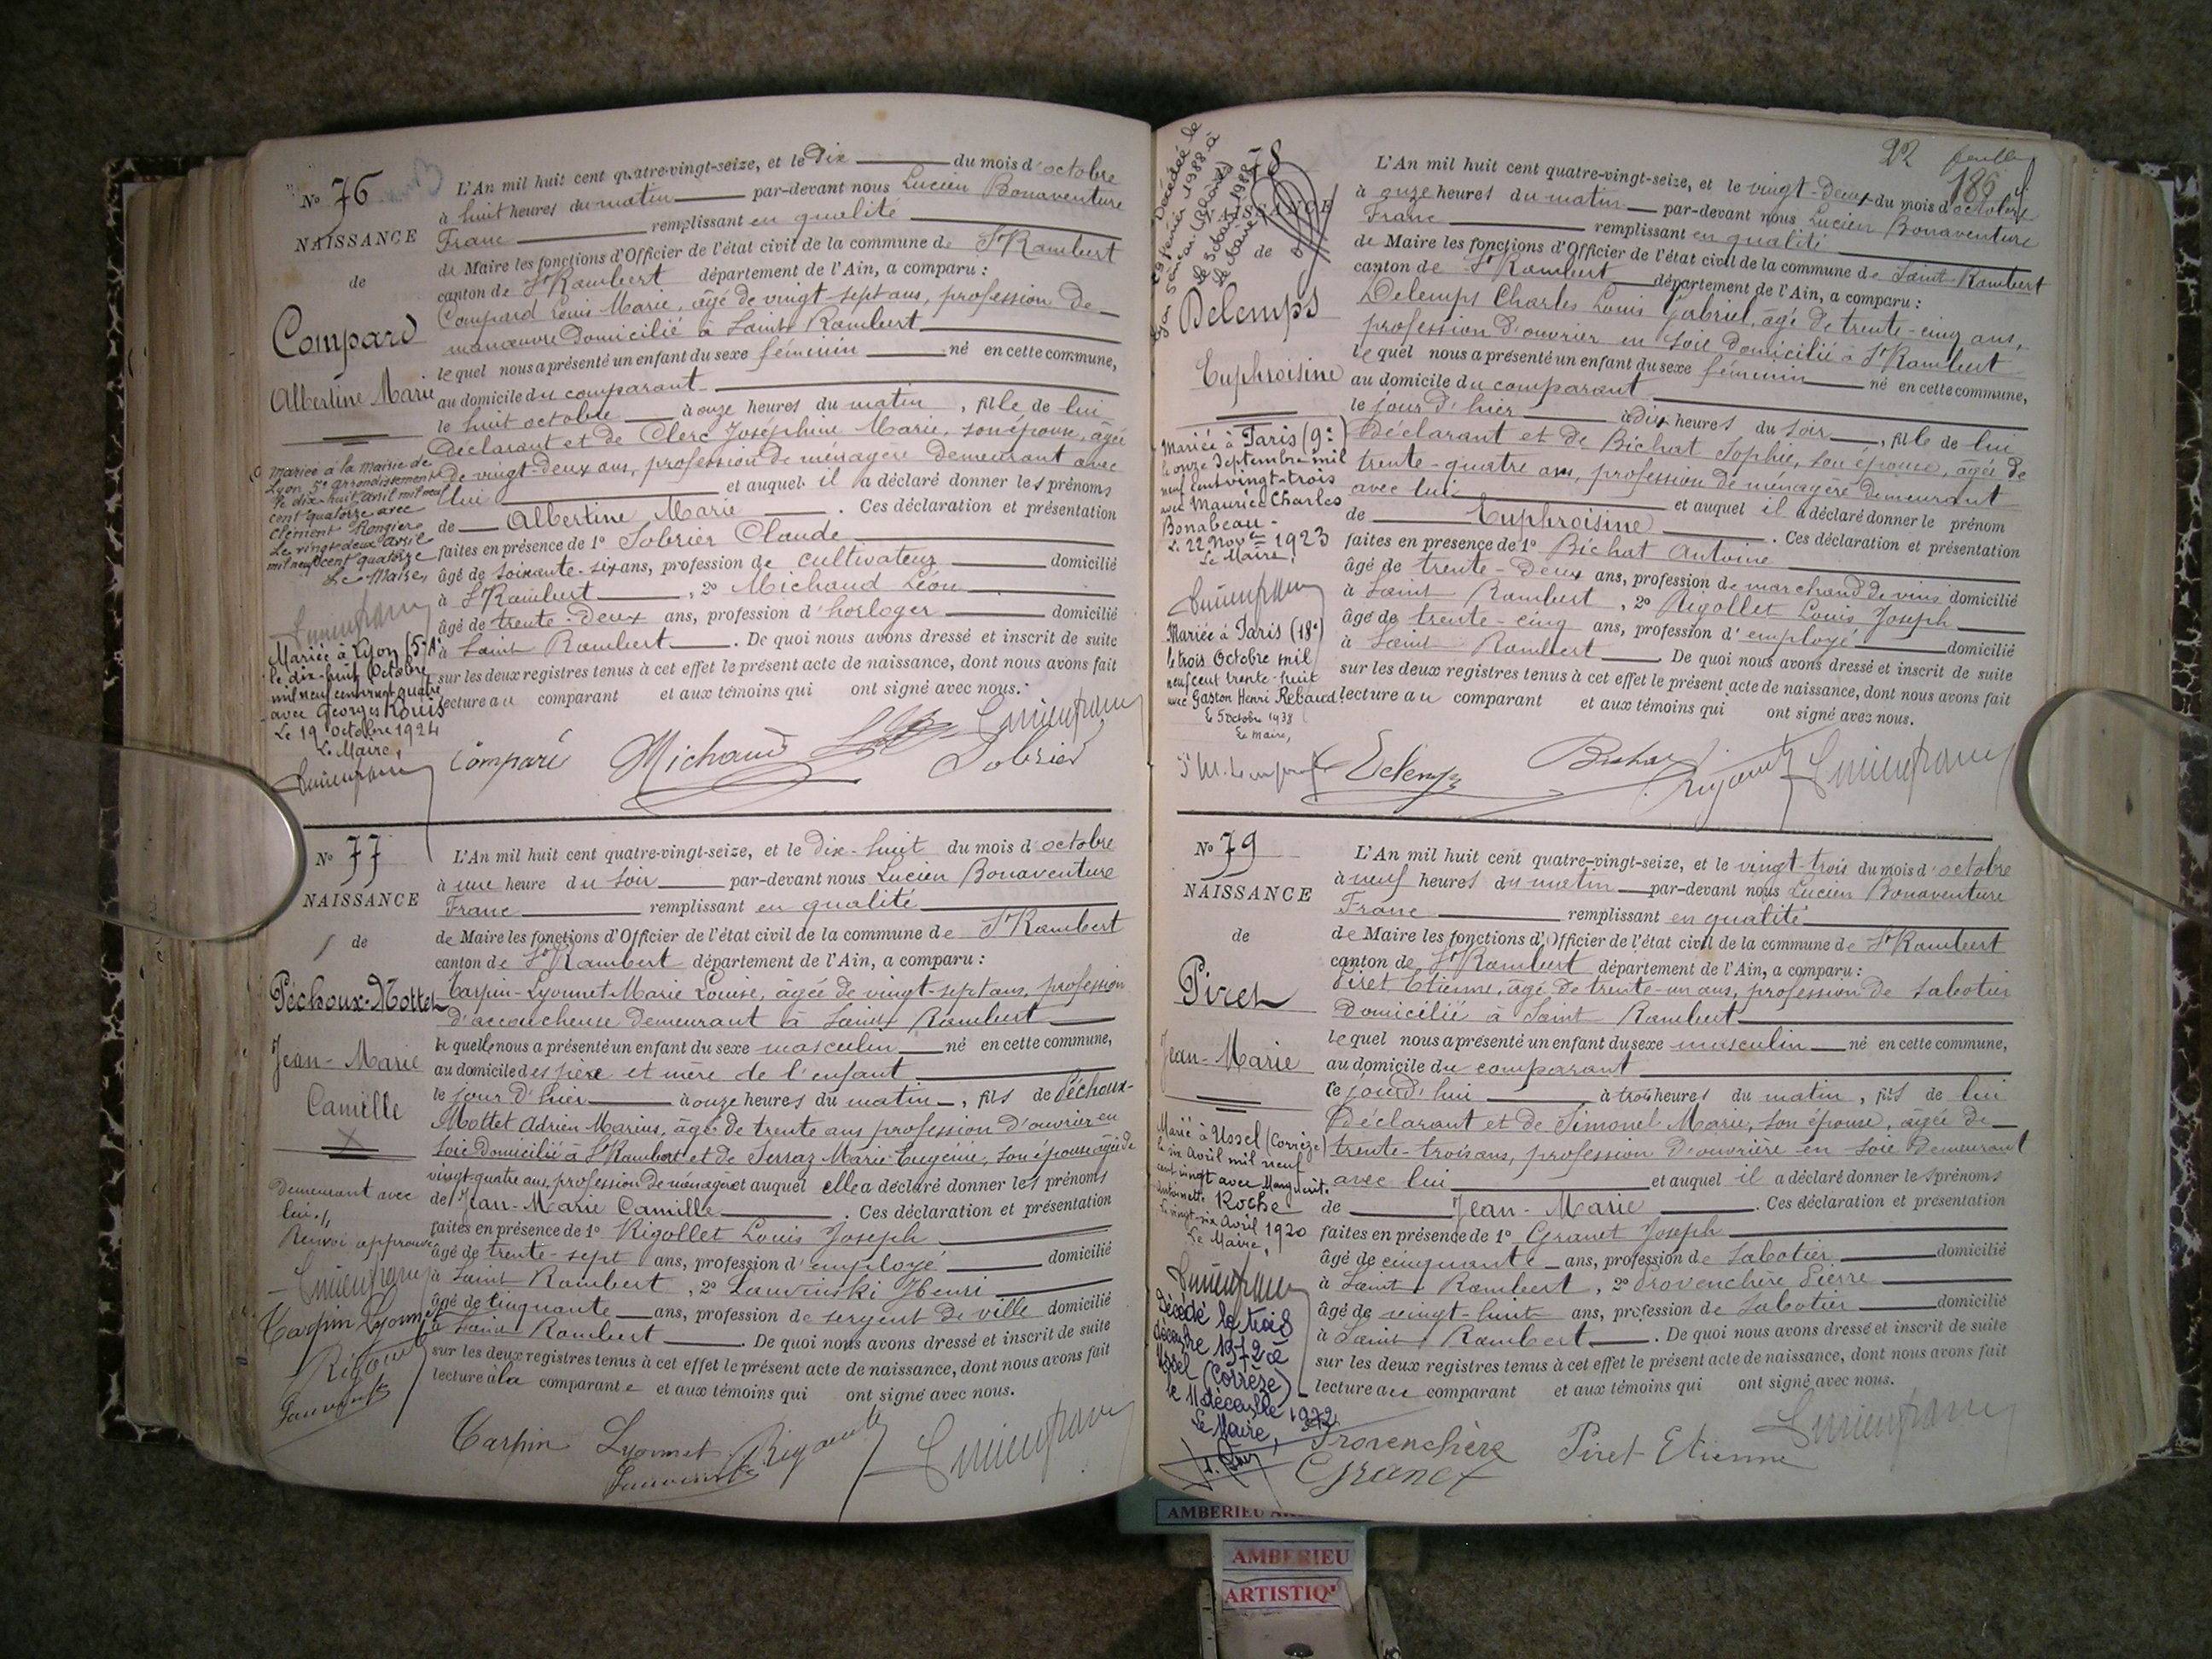 No 76
NAISSANCE
de
Compard
Albertine Marie
L'An mil huit cent quatre-vingt-seize, et le dix du mois d'octobre
à huit heures du matin par-devant nous Lucien Bonaventure
Franc remplissant en qualité
de Maire les fonctions d'Officier de l'état civil de la commune de St Rambert
canton de St Rambert département de l'Ain, a comparu :
Compard Louis Marie, âgé de vingt-sept ans, profession de
manœuvre domicilié à Saint Rambert
lequel nous a présenté un enfant du sexe féminin né en cette commune,
au domicile du comparant
le huit octobre à onze heures du matin, fille de lui
déclarant et de Clerc Joséphine Marie, son épouse, âgée
de vingt-deux ans, profession de ménagère demeurant avec
lui et auquel il a déclaré donner les prénoms
de Albertine Marie. Ces déclaration et présentation
faites en présence de 1° Sobrier Claude
âgé de soixante-six ans, profession de cultivateur domicilié
à St Rambert, 2° Michaud Léon
âgé de trente-deux ans, profession d'horloger domicilié
à Saint Rambert. De quoi nous avons dressé et inscrit de suite
sur les deux registres tenus à cet effet le présent acte de naissance, dont nous avons fait
lecture au comparant et aux témoins qui ont signé avec nous.
Mariée à la mairie de
Lyon, 5e arrondissement
le dix-huit avril mil neuf
cent quatorze avec
Clément Rongier
Le vingt-deux avril
mil neuf cent quatorze
Le Maire,
Mariée à Lyon (5e)
le dix-huit Octobre
mil neuf cent vingt quatre
avec Georges Rouis
Le 19 octobre 1924
Le Maire,
Comparé Michaud Sobrier
No 77
NAISSANCE
de
Péchoux-Mottet
Jean-Marie
Camille
L'An mil huit cent quatre-vingt-seize, et le dix-huit du mois d'octobre
à une heure du soir par-devant nous Lucien Bonaventure
Franc remplissant en qualité
de Maire les fonctions d'Officier de l'état civil de la commune de St Rambert
canton de St Rambert département de l'Ain, a comparu :
Tarpin-Lyonnet Marie Louise, âgée de vingt-sept ans, profession
d'accoucheuse demeurant à Saint Rambert
laquelle nous a présenté un enfant du sexe masculin né en cette commune,
au domicile des père et mère de l'enfant
le jour d'hier à onze heures du matin, fils de Péchoux-
Mottet Adrien Marius, âgé de trente ans profession d'ouvrier en
soie domicilié à St Rambert et de Serraz Marie Eugénie, son épouse âgée de
vingt-quatre ans, profession de ménagère et auquel elle a déclaré donner les prénoms
de Jean-Marie Camille. Ces déclaration et présentation
faites en présence de 1° Rigollet Louis Joseph
âgé de trente-sept ans, profession d'employé domicilié
à Saint Rambert, 2° Henri
âgé de cinquante ans, profession de sergent de ville domicilié
à Saint Rambert. De quoi nous avons dressé et inscrit de suite
sur les deux registres tenus à cet effet le présent acte de naissance, dont nous avons fait
lecture à la comparante et aux témoins qui ont signé avec nous.
Demeurant avec
lui./.
Renvoi approuvé
Tarpin Lyonnet
Tarpin Lyonnet
22 feuillet
186
78
NAISSANCE
de
Delemps
Euphroisine
L'An mil huit cent quatre-vingt-seize, et le vingt-deux du mois d'octobre
à onze heures du matin par-devant nous Lucien Bonaventure
Franc remplissant en qualité
de Maire les fonctions d'Officier de l'état civil de la commune de Saint-Rambert
canton de St Rambert département de l'Ain, a comparu :
Delemps Charles Louis Gabriel, âgé de trente-cinq ans,
profession d'ouvrier en soie domicilié à St Rambert
lequel nous a présenté un enfant du sexe féminin né en cette commune,
au domicile du comparant
le jour d'hier à dix heures du soir, fille de lui
déclarant et de Bichat Sophie, son épouse, âgée de
trente-quatre ans, profession de ménagère demeurant
avec lui et auquel il a déclaré donner le prénom
de Euphroisine. Ces déclaration et présentation
faites en présence de 1° Bichat Antoine
âgé de trente-deux ans, profession de marchand de vins domicilié
à Saint Rambert, 2° Rigollet Louis Joseph
âgé de trente-cinq ans, profession d'employé domicilié
à Saint Rambert. De quoi nous avons dressé et inscrit de suite
sur les deux registres tenus à cet effet le présent acte de naissance, dont nous avons fait
lecture au comparant et aux témoins qui ont signé avec nous.
Mariée à Paris (9e)
le onze Septembre mil
neuf cent vingt-trois
avec Maurice Charles
Bonabeau
Le 22 Nov. 1923
Le Maire,
Mariée à Paris (18e)
le trois Octobre mil
neuf cent trente-huit
avec Gaston Henri Rebaud
Le 5 octobre 1938
Le Maire,
Delemps
No 79
NAISSANCE
de
Piret
Jean-Marie
L'An mil huit cent quatre-vingt-seize, et le vingt-trois du mois d'octobre
à neuf heures du matin par-devant nous Lucien Bonaventure
Franc remplissant en qualité
de Maire les fonctions d'Officier de l'état civil de la commune de St Rambert
canton de St Rambert département de l'Ain, a comparu :
Piret Etienne, âgé de trente-un ans, profession de sabotier
domicilié à Saint Rambert
lequel nous a présenté un enfant du sexe masculin né en cette commune,
au domicile du comparant
ce jourd'hui à trois heures du matin, fils de lui
déclarant et de Simonel Marie, son épouse, âgée de
trente-trois ans, profession d'ouvrière en soie demeurant
avec lui et auquel il a déclaré donner les prénoms
de Jean-Marie. Ces déclaration et présentation
faites en présence de 1° Granet Joseph
âgé de cinquante ans, profession de sabotier domicilié
à Saint Rambert, 2° Provenchère Pierre
âgé de vingt-huit ans, profession de sabotier domicilié
à Saint Rambert. De quoi nous avons dressé et inscrit de suite
sur les deux registres tenus à cet effet le présent acte de naissance, dont nous avons fait
lecture au comparant et aux témoins qui ont signé avec nous.
Marié à Ussel (Corrèze)
le six Avril mil neuf
cent vingt avec Marguerite
Antoinette Roche
Le vingt-six Avril 1920
Le Maire,
Décédé le trois
décembre 1972 à
Ussel (Corrèze)
le 11 décembre 1972
Le Maire,
Provenchère Piret Etienne
Granet
AMBERIEU
AMBERIEU
ARTISTIQ